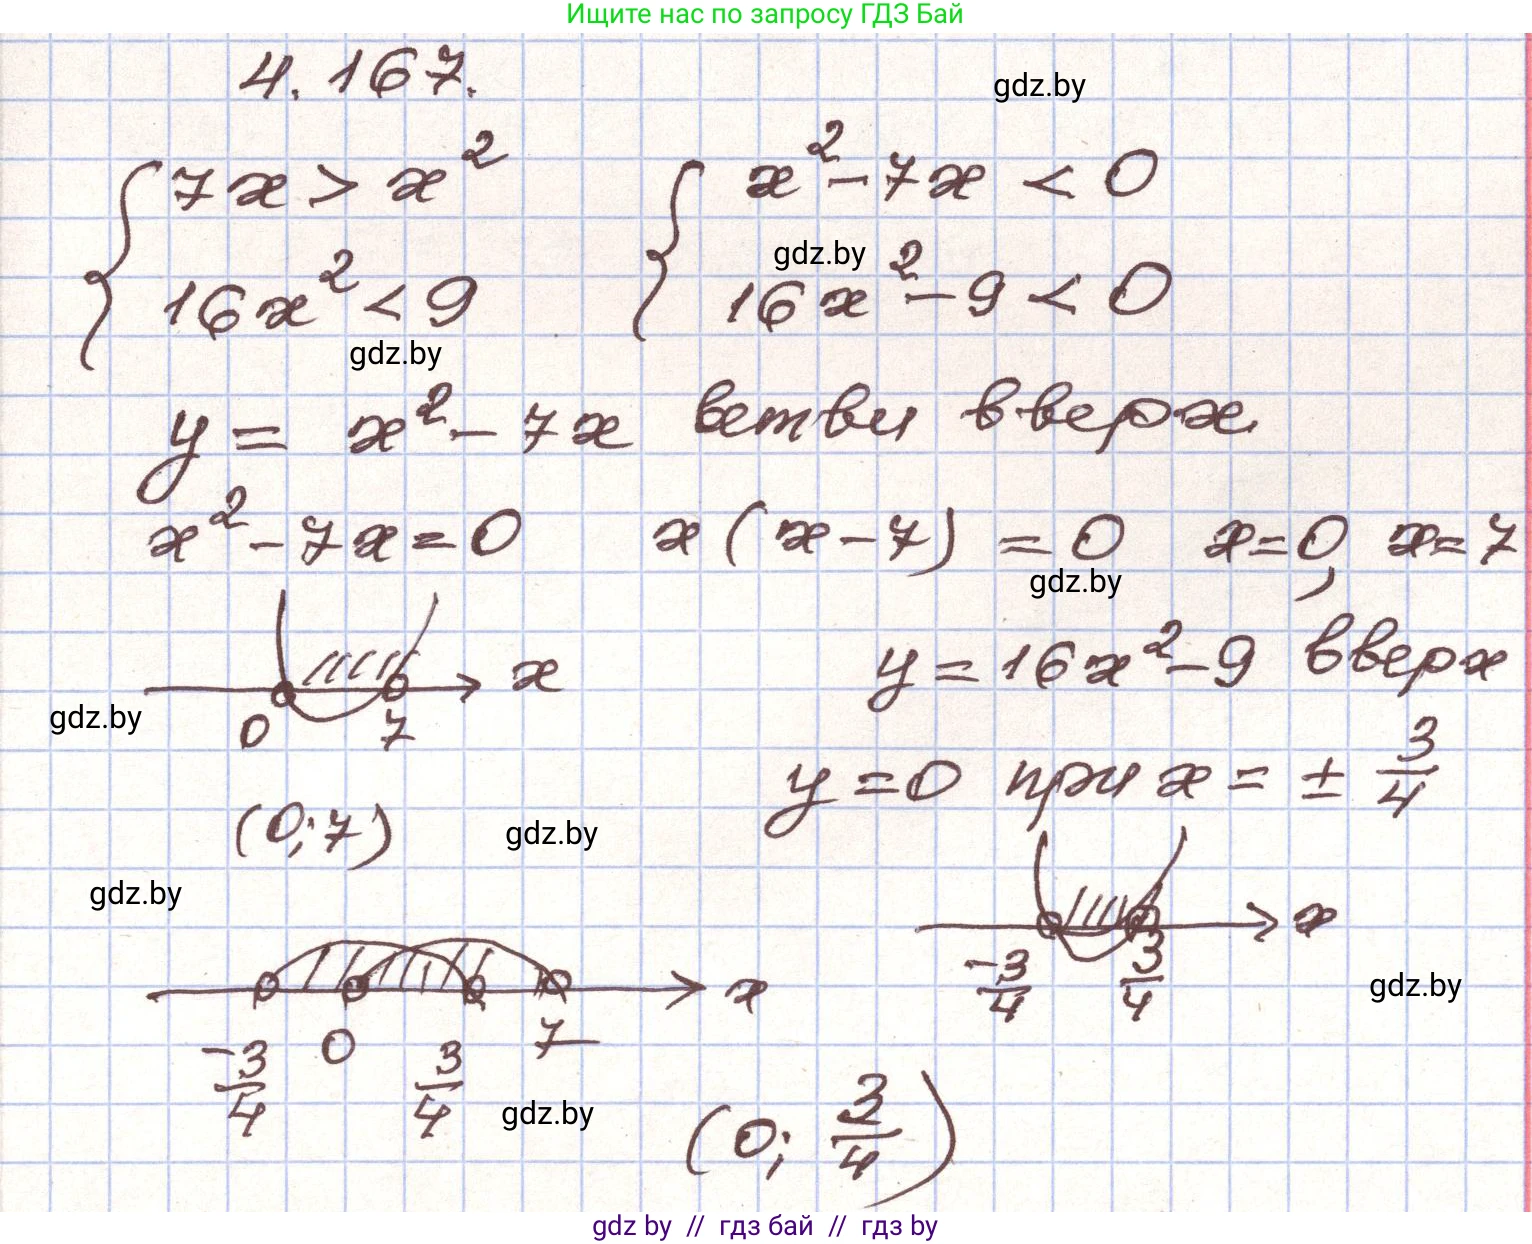 Ищите нас по запросу ГДЗ Бай
4.167.
gdz.by
{ 7x > x²
{ x² - 7x < 0
gdz.by
{ 16x² < 9
{ 16x² - 9 < 0
gdz.by
y = x² - 7x ветви вверх.
x² - 7x = 0 x(x - 7) = 0 x = 0, x = 7
gdz.by
x
0 7
y = 16x² - 9 вверх
gdz.by
y = 0 при x = ± 3/4
(0; 7)
gdz.by
gdz.by
x
-3/4 3/4
gdz.by
x
-3/4 0 3/4 7
gdz.by
(0; 3/4)
gdz by // гдз бай // гдз by